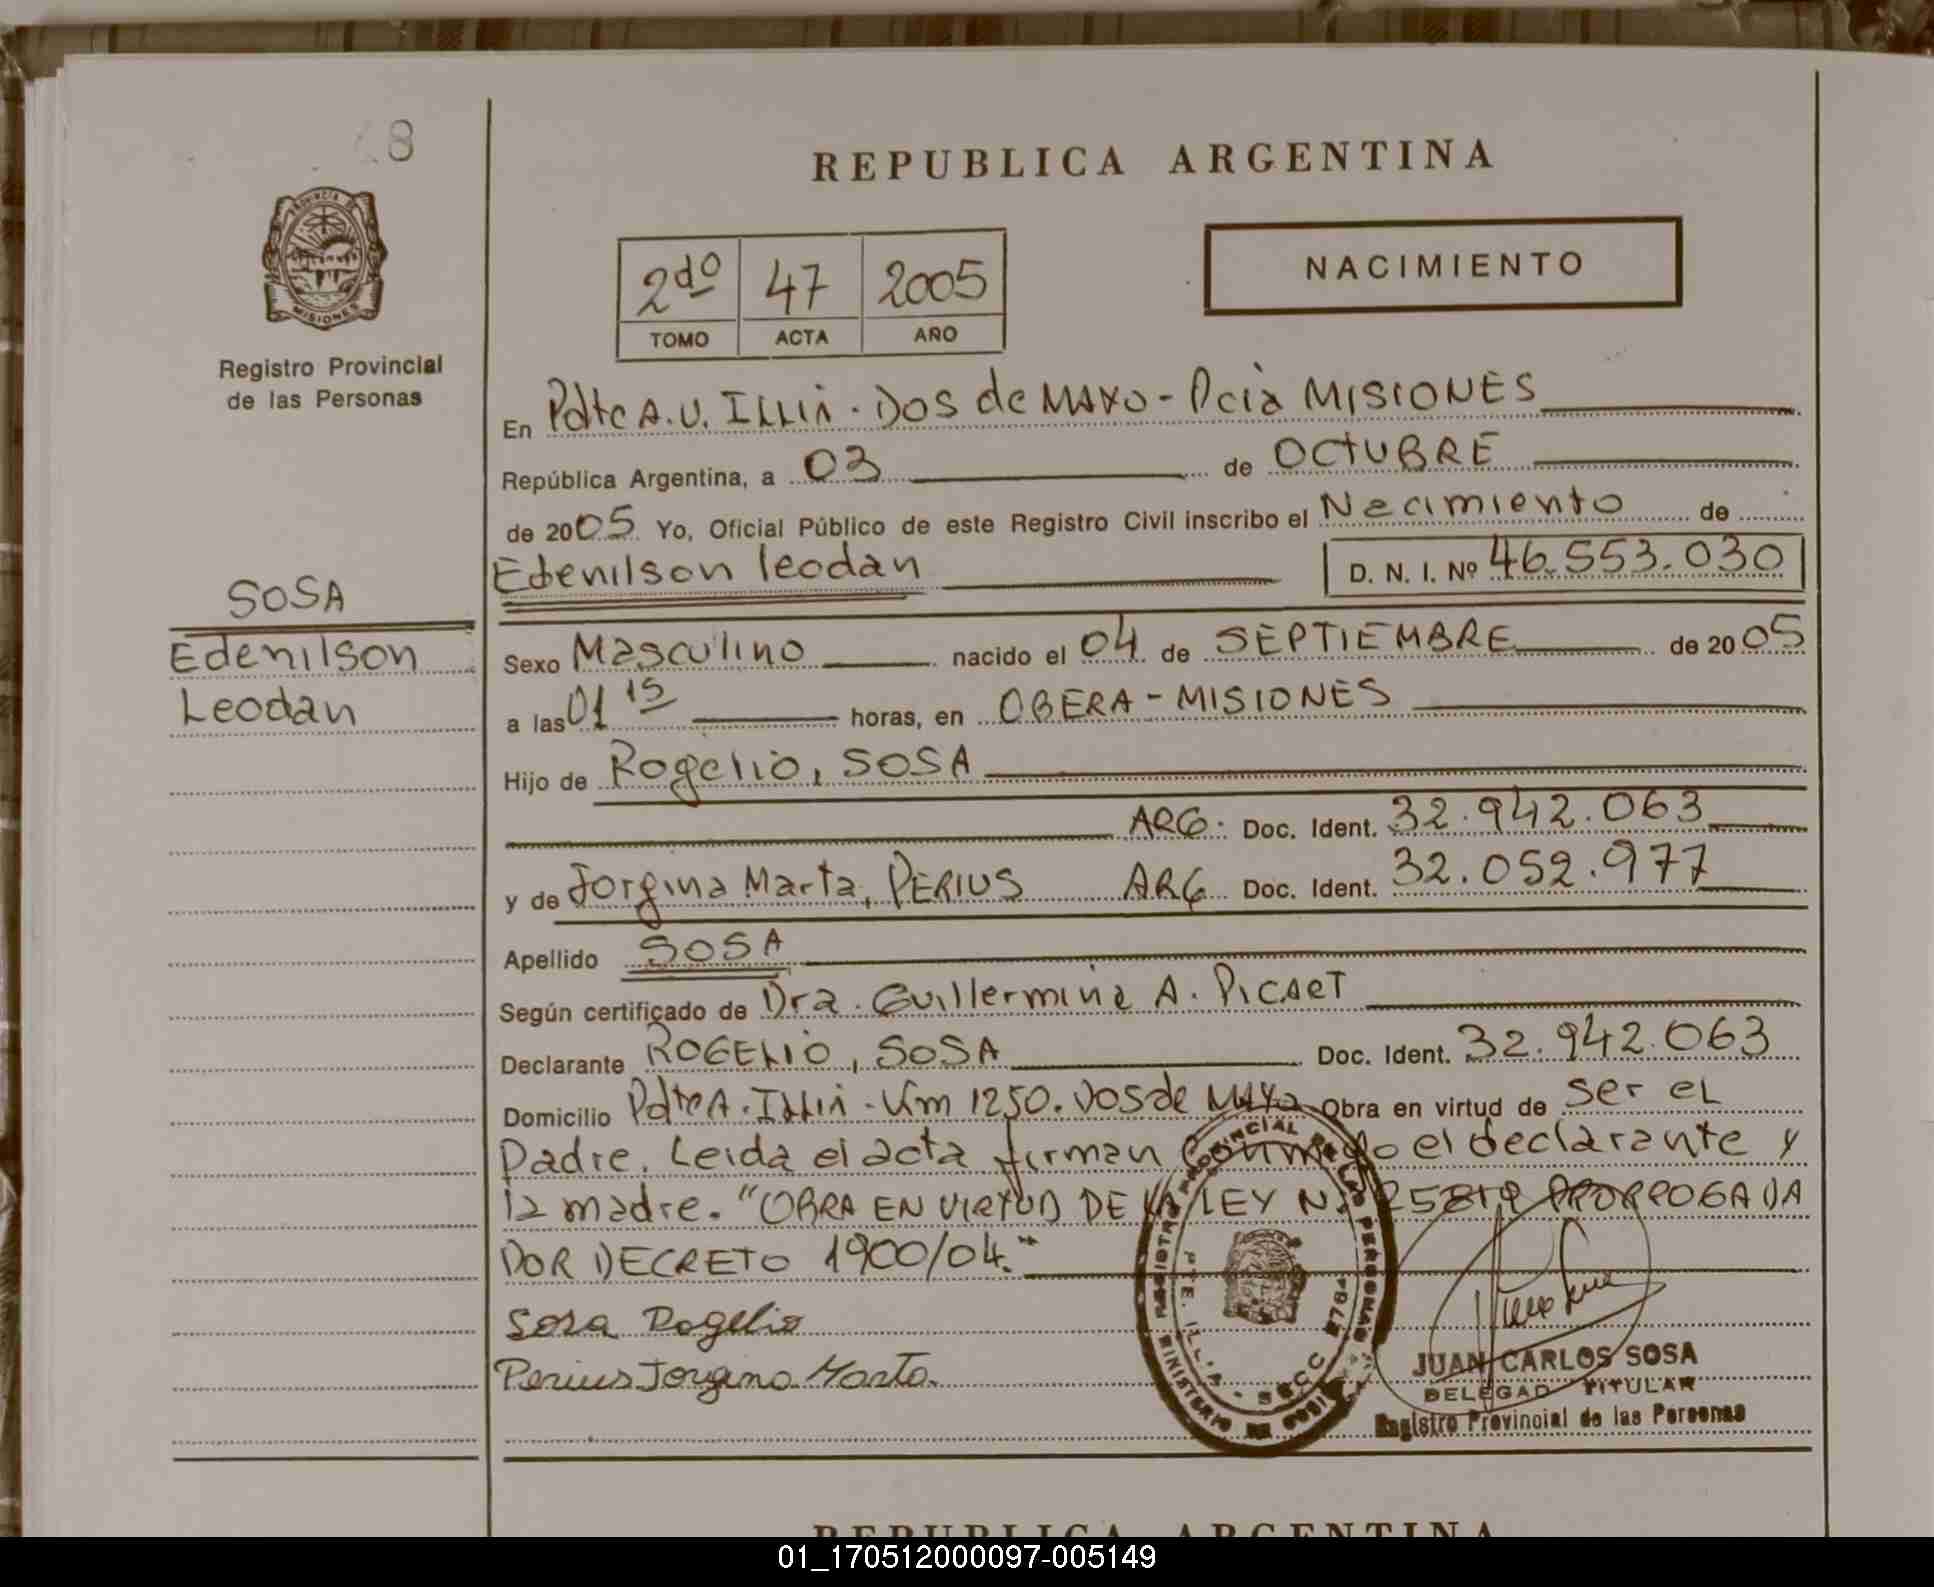 68
REPUBLICA ARGENTINA
PROVINCIA DE MISIONES
Registro Provincial
de las Personas
2do 47 2005
TOMO ACTA AÑO
NACIMIENTO
En Pdte A.U. ILLIA - DOS de MAYO - Pcia MISIONES
República Argentina, a 03 de OCTUBRE
de 2005 Yo, Oficial Público de este Registro Civil inscribo el Nacimiento de
Edenilson leodan D. N. I. Nº 46.553.030
SOSA
Edenilson
Leodan
Sexo Masculino nacido el 04 de SEPTIEMBRE de 2005
a las 01 15 horas, en OBERA - MISIONES
Hijo de Rogelio, SOSA
ARG. Doc. Ident. 32.942.063
y de Jorgina Marta, PERIUS ARG Doc. Ident. 32.052.977
Apellido SOSA
Según certificado de Dra. Guillermina A. PICAET
Declarante ROGELIO, SOSA Doc. Ident. 32.942.063
Domicilio Pdte A. ILLIA - Km 1250. Dos de MAYO Obra en virtud de ser el
Padre. Leida el acta firman conmigo el declarante y
la madre. "OBRA EN VIRTUD DE LA LEY Nº 25819 PRORROGADA
POR DECRETO 1900/04."
Sosa Rogelio
Perius Jorgina Marta.
REGISTRO PROVINCIAL DE LAS PERSONAS
PTE. ILLIA - SECC 2764
MINISTERIO DE GOBI
JUAN CARLOS SOSA
DELEGAD TITULAR
Registro Provincial de las Personas
REPUBLICA ARGENTINA
01_170512000097-005149